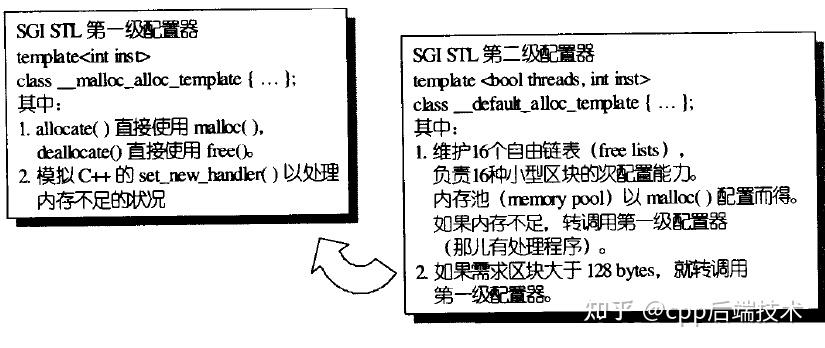 SGI STL 第一级配置器
template<int inst>
class __malloc_alloc_template { … };
其中：
1. allocate( ) 直接使用 malloc( ),
deallocate() 直接使用 free()。
2. 模拟 C++ 的 set_new_handler( ) 以处理
内存不足的状况
SGI STL 第二级配置器
template <bool threads, int inst>
class __default_alloc_template { … };
其中：
1. 维护16个自由链表（free lists），
负责16种小型区块的次配置能力。
内存池（memory pool）以 malloc( ) 配置而得。
如果内存不足，转调用第一级配置器
（那儿有处理程序）。
2. 如果需求区块大于 128 bytes，就转调用
第一级配置器。
知乎 @cpp后端技术